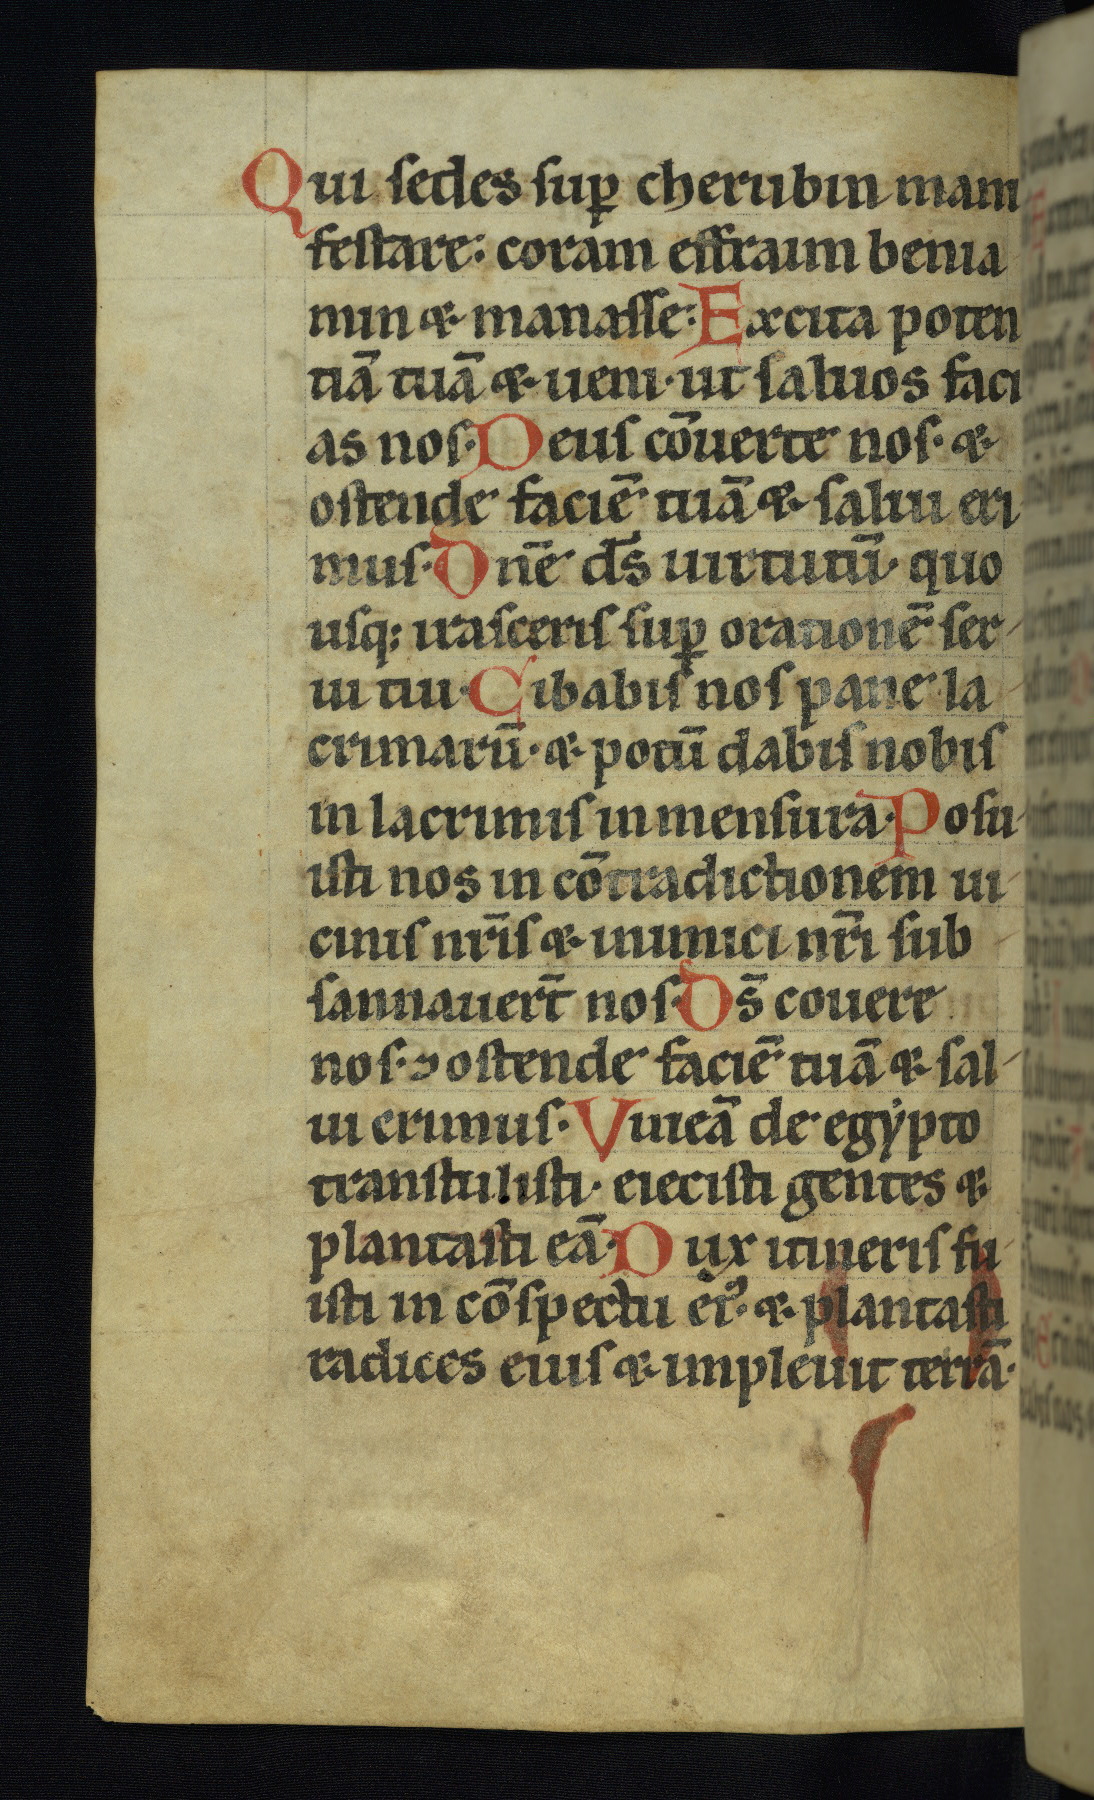 Qui sedes sup̱ cherubin mani
festare: coram effraim benia
min & manasse: Excita poten
tiā tuā & ueni· ut saluos faci
as nos· Deus cōuerte nos· &
ostende faciē tuā & salui eri
mus· Dn̄e d̄s uirtutū· quo
usq; irasceris sup̱ orationē ser
ui tui· Cibabis nos pane la
crimarū· & potū dabis nobis
in lacrimis in mensura· Posu
isti nos in cōtradictionem ui
cinis nr̄is & inimici nr̄i sub
sannauert̄ nos· Ds̄ couere
nos· ⁊ ostende faciē tuā & sal
ui erimus· Vineā de egẏpto
transtulisti· eiecisti gentes &
plantasti eā· Dux itineris fu
isti in cōspectu ei᷒· & plantasti
radices eius & impleuit terrā·